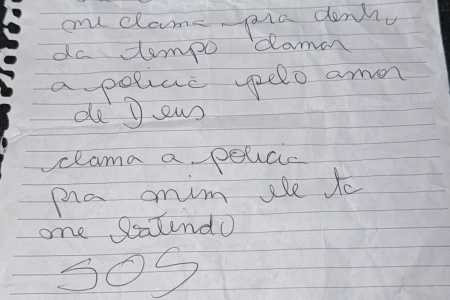 me clama pra dentro
da tempo clamar
a policia pelo amor
de Deus
clama a policia
pra mim ele tc
me batendo
SOS